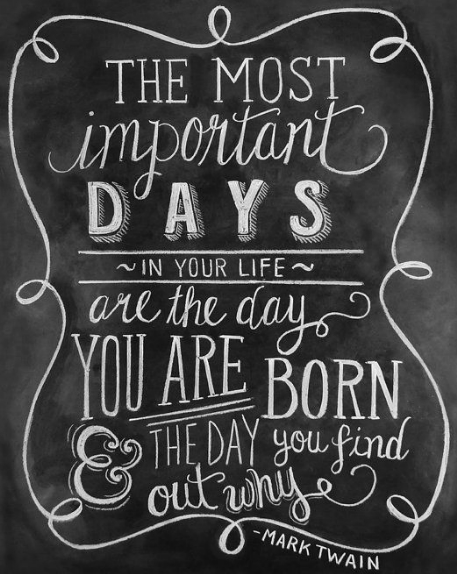 THE MOST
important
DAYS
~IN YOUR LIFE~
are the day
YOU ARE BORN
& THE DAY you find
out why
-MARK TWAIN